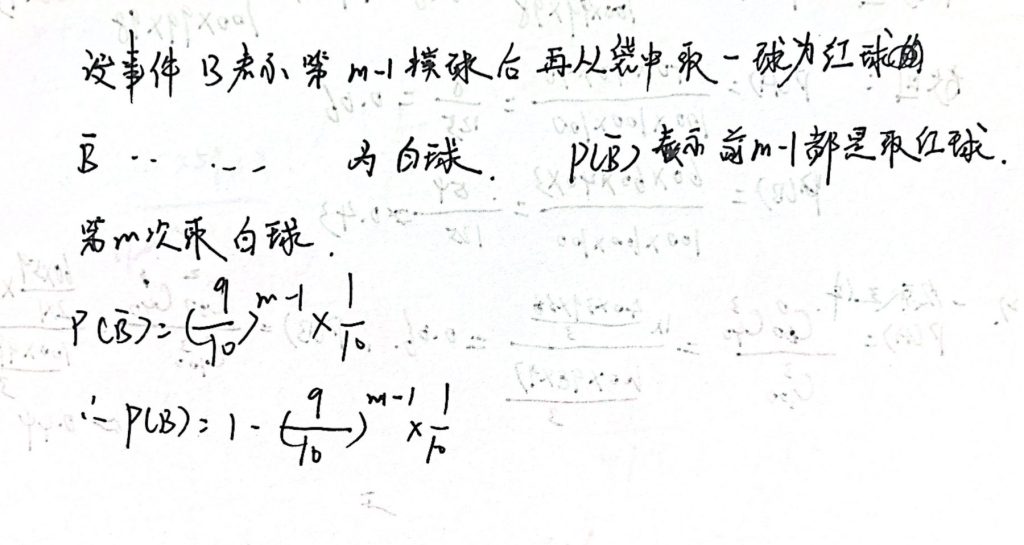 设事件 B 表示第 m-1 摸球后 再从袋中取一球为红球的
B̄ ·· ·-- 为白球. P(B̄) 表示前m-1都是取红球.
第m次取白球.
P(B̄)= (9/10)^{m-1} × 1/10
∴ P(B)= 1 - (9/10)^{m-1} × 1/10